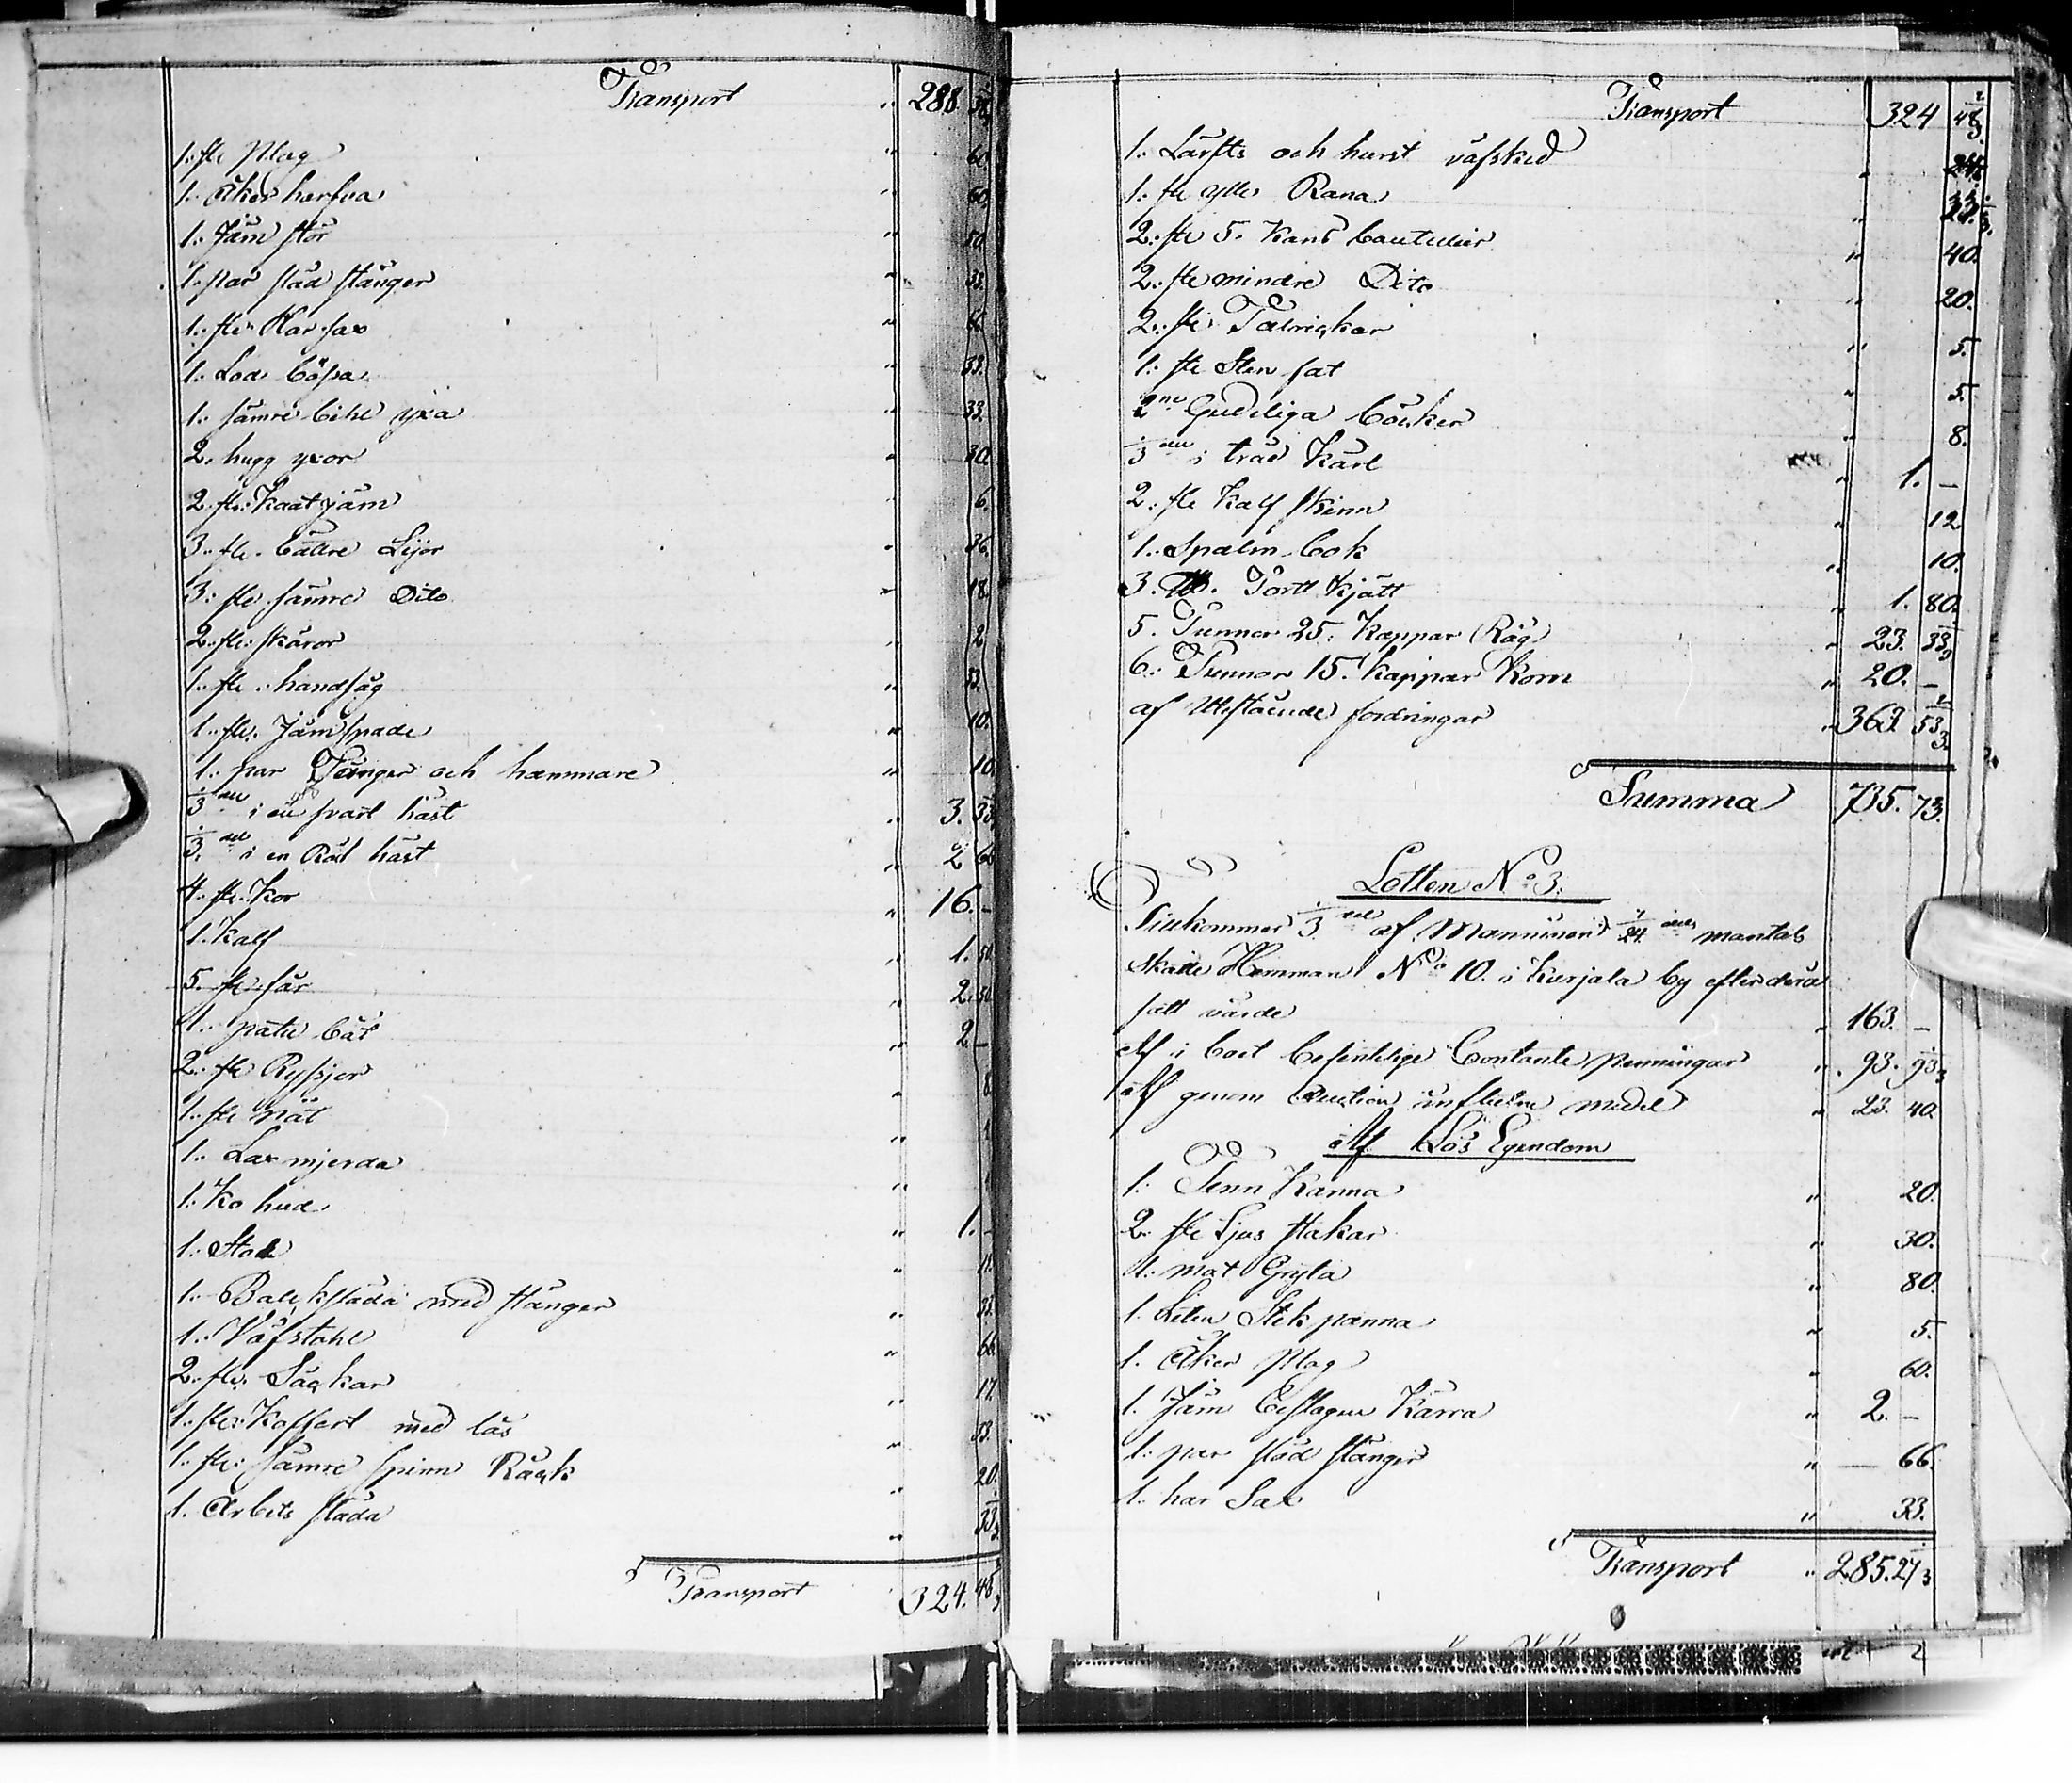 Transport " 288.
1. ste Plog " 60.
1. Åker harfva " 60.
1. Järn stör " 50.
1. par städ stänger " 33.
1. ste Har sax " 66.
1. Lod bössa " 33.
1. sämre bihl yxa " 33.
2. hugg yxor " 30.
2. ste järn " 6.
3. ste bättre Lijor " 36.
3. ste sämre Dito " 18.
2. ste skäror " 2.
1. ste handsåg " 33.
1. ste Järn spade " 10.
1. par Tänger och hammare " 10.
1/3 del i en svart häst " 3. 33
1/3 del i en Röd häst " 2 66
4. ste Kor " 16. -
1. Kalf " 1. 50
5. ste får " 2. 50
1. båt " 2 -
2. ste Ryssjor " 8
1. ste nät "
1. Lax mjerda "
1. Ko hud " 1. -
1. Stol " 11.
1. släda med stänger " 33.
1. Väfstohl " 66.
2. ste Säckar " 17.
1. ste Koffert med lås " 33.
1. ste sämre spinn Råck " 20.
1. Arbets släda " 33
Transport 324. 48
Transport 324 48 2/3
1. Lärfts och hurst väfsked " 24.
1. ste ylle Rana " 33 1/3
2. ste 5. Kans bouteljer " 40.
2. ste mindre Dito " 20.
2. ste Talrickar " 5.
1. ste Sten fat " 5.
2ne Gudeliga Böcker " 8.
1/3 del i träd Kärl " 1. -
2. ste Kalf skinn " 12
1. Spalm bok " 10.
3. Torrt kjött " 1. 80.
5. Tunnor 25. Kappar Råg " 23. 33
6. Tunnor 15. Kappar Korn " 20. -
af Utestående fordringar " 363. 53 2/3
Summa 735. 73.
Lotten No 3.
Tillkommer 1/3 del af Manninen 1/24 dels mantals
skatte Hemman No 10. i Kurjala by efter dess
satt värde " 163. -
Af i boet befintelige Contante penningar " 93. 93
Af genom Auction influtne medel " 23. 40.
Af Lös Egendom
1. Tenn Kanna " 20.
2. ste Ljus stakar " 30.
1. mat Gryta " 80.
1. Liten Stek panna " 5.
1. Åker Plog " 60.
1. Järn beslagen Kärra " 2. -
1. par städ stänger " - 66.
1. har Sax " 33.
Transport " 285. 27 1/3